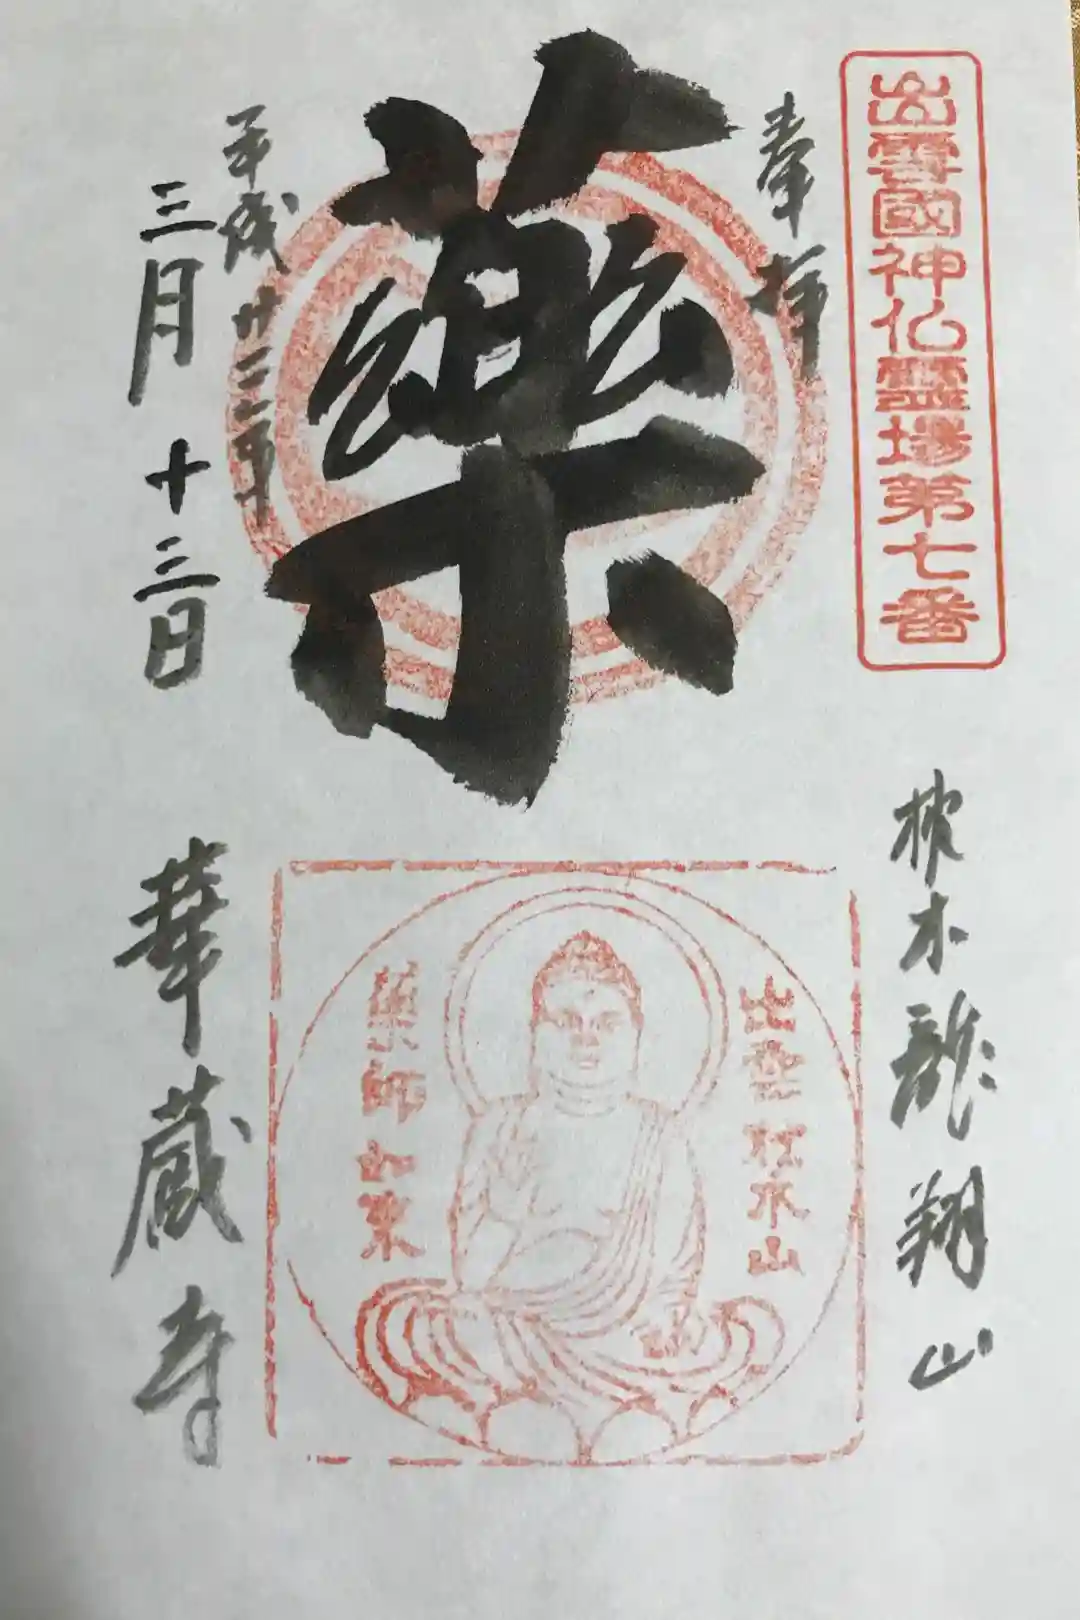 出雲國神仏霊場第七番
奉拝
枕木龍翔山
薬
出雲枕木山
薬師如来
平成廿二年
三月十三日
華蔵寺